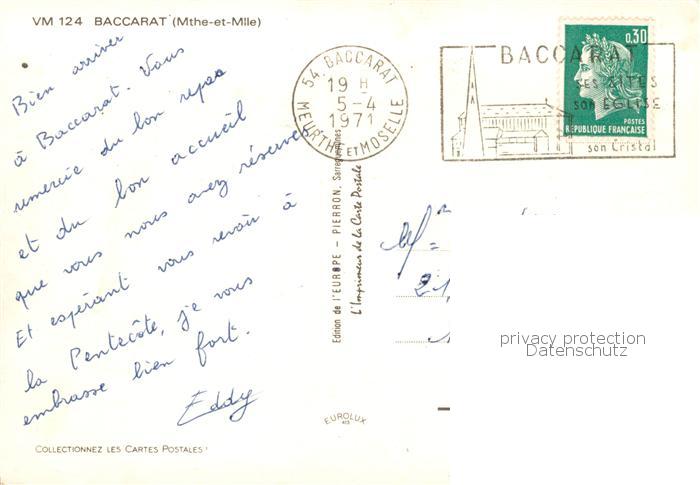 VM 124 BACCARAT (Mthe-et-Mlle)
Bien arriver
à Baccarat. Vous
remercie du bon repas
et du bon accueil
que vous nous avez réservés
Et espérant vous revoir à
la Pentecôte, je vous
embrasse bien fort.
Eddy
COLLECTIONNEZ LES CARTES POSTALES !
Edition de l'EUROPE - PIERRON, Sarreguemines
L'Imprimeur de la Carte Postale
EUROLUX
54 BACCARAT
19 H
5-4
1971
MEURTHE ET MOSELLE
BACCARAT
SES SITES
son EGLISE
son Cristal
0,30
POSTES
REPUBLIQUE FRANÇAISE
M=
21
privacy protection
Datenschutz